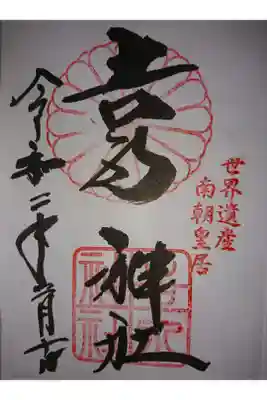 世界遺産
南朝皇居
吉水神社
吉水
神社
令和二年月吉